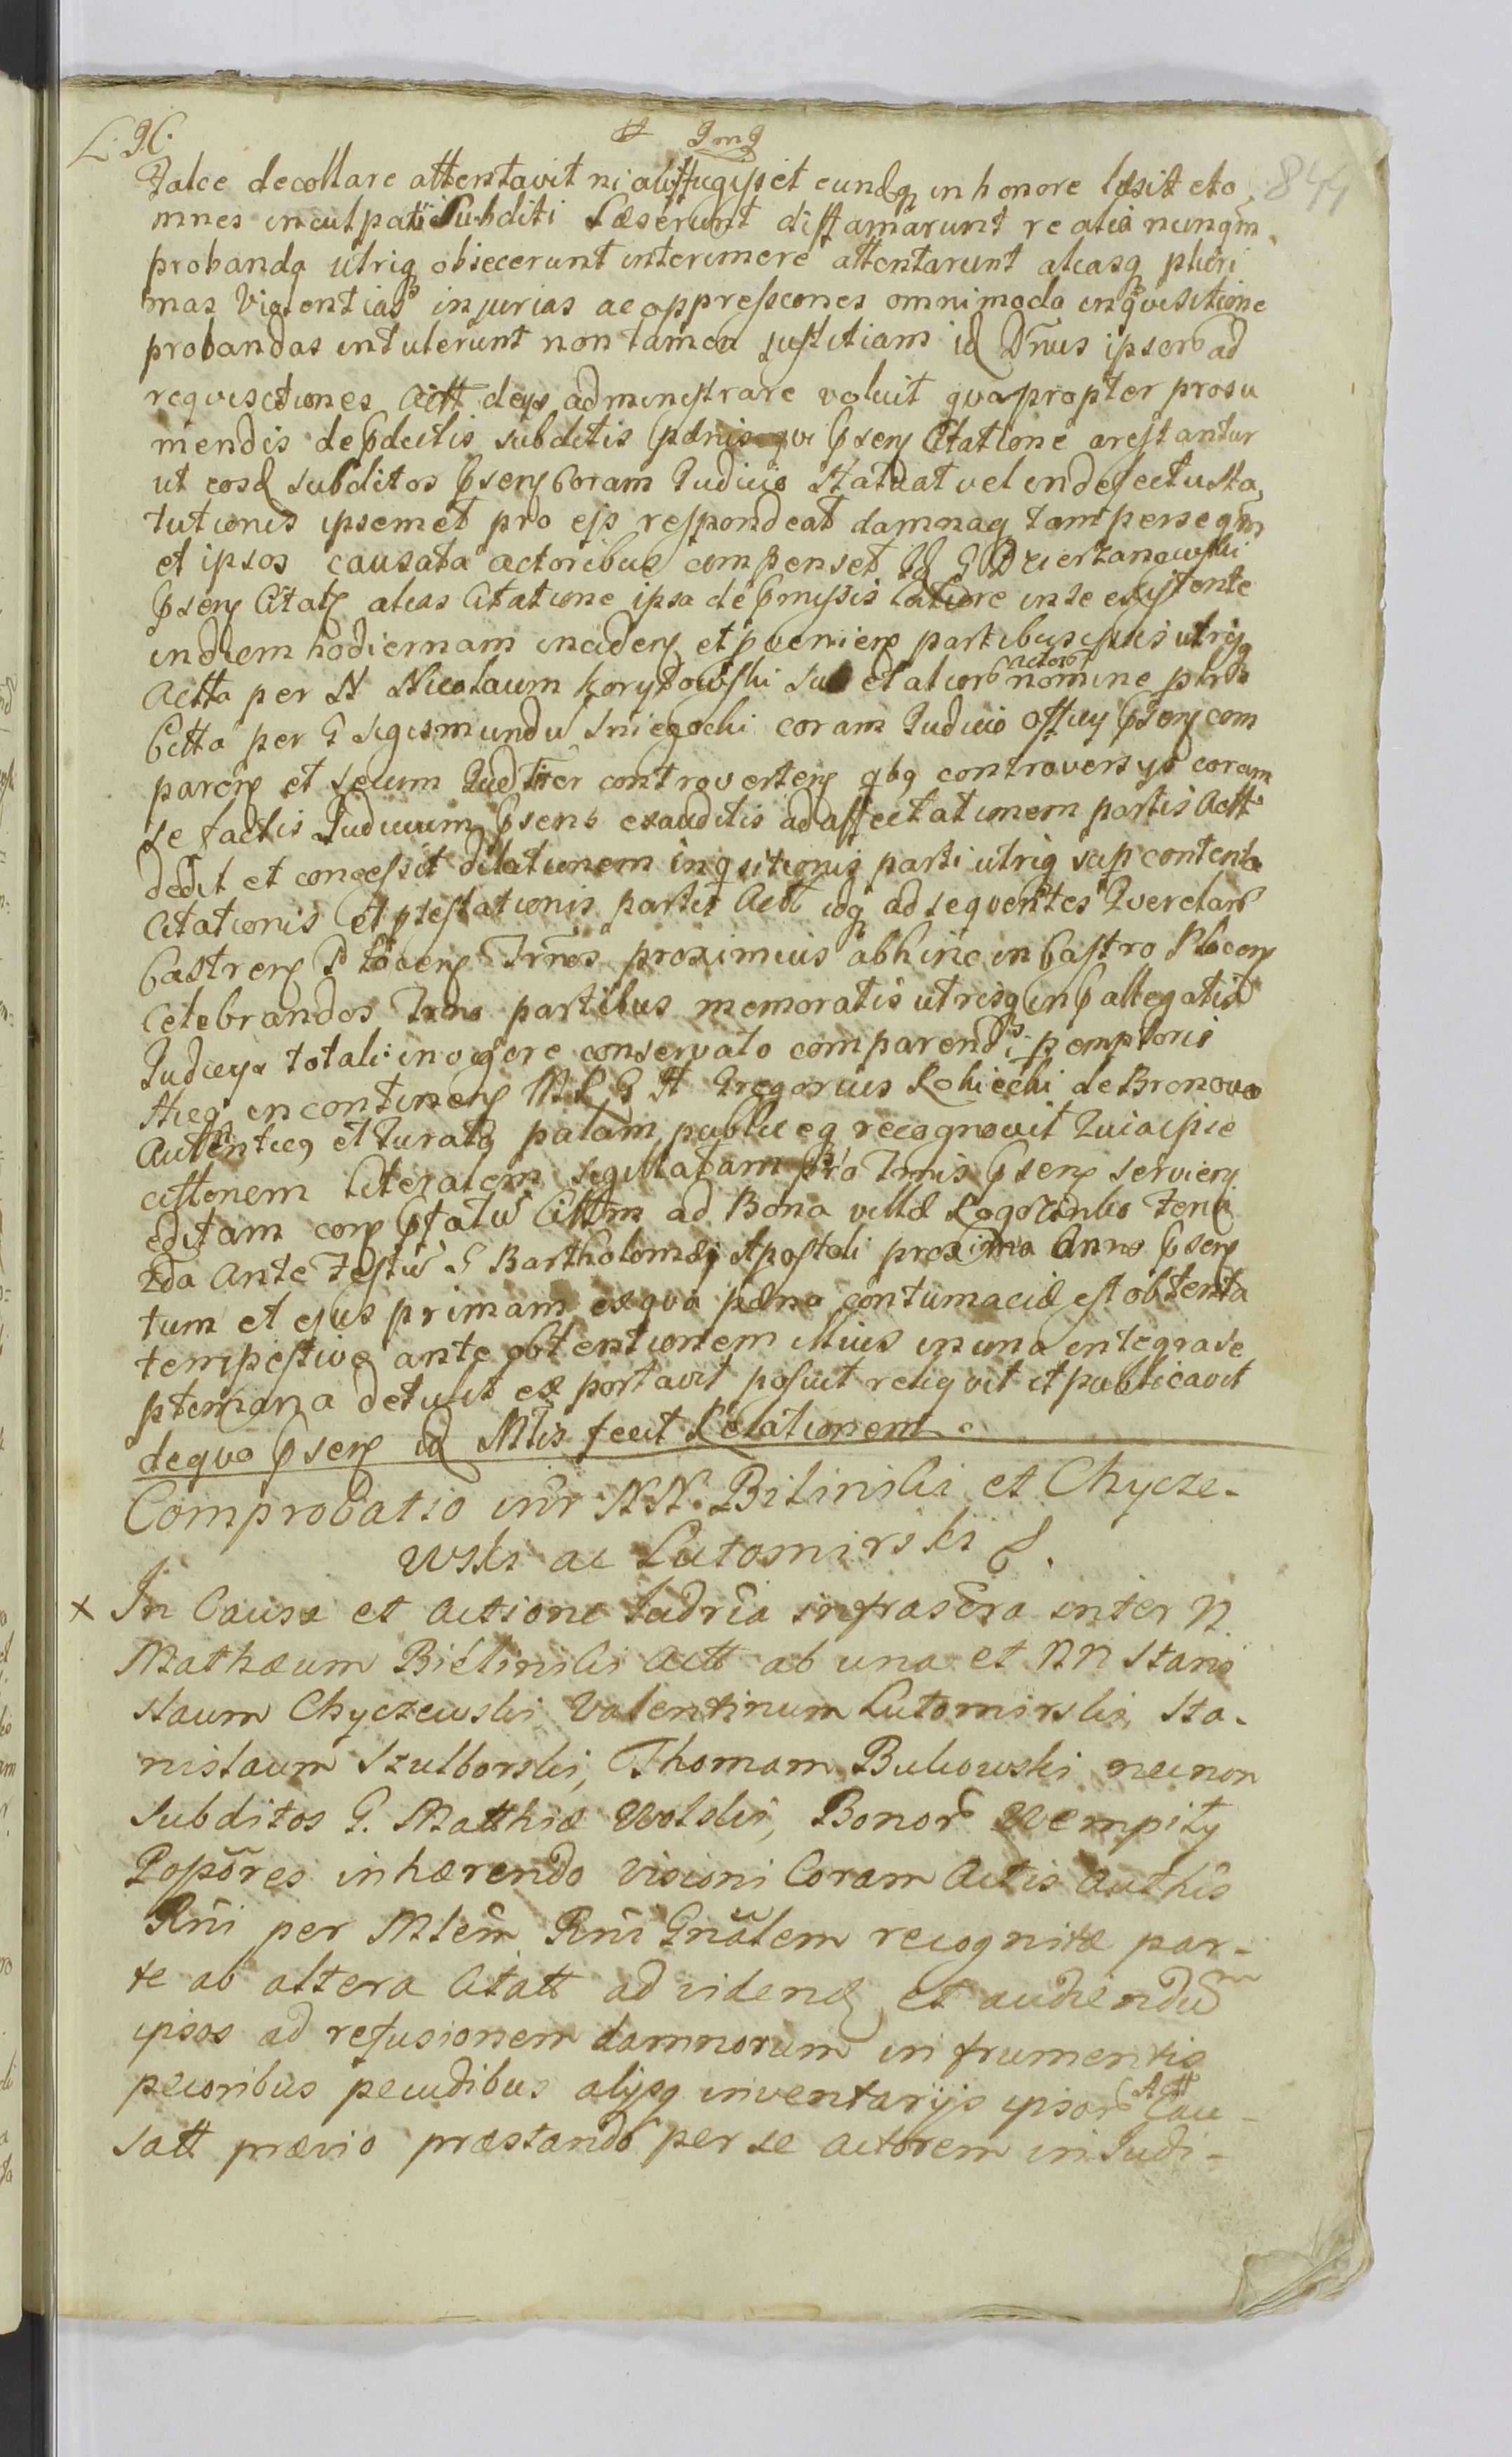 844
falce decollare attentavit ni aliffugisset eundq in honore læsit et o
mnes inculpati Subditi Læserunt diffamarunt re alia nunqm
probanda utriq obiecerunt interimere attentarunt aliasq pluri
mas Violentias injurias ac oppressiones omnimoda inqvisitione
probandas intulerunt non tamen justitiam id Dnus ipsor ad
reqvisitiones Actt deijs administrare voluit qvapropter prosu
mendis de subditis qvi psens Citatione arestantur
ut eosd subditos psens Coram Judicio Statuat vel in defectu sta
tutionis ipsemet pro ejs respondeat damnaq tam per se qm
et ipsos causata actoribus compenset G Dzierzanowski
psens Citats alias Citatione ipsa de pmissis latiore in se existente
in diem hodiernam inciden et pvenien partibus ipsis utrisq
Actta per N Nicolaum Korytowski suo et alior actor nomine
Citta per G Sigismundu Sniegocki coram Judicio Officij psens com
paren et secum Juditer controverten qbq controversys coram
se factis Judicium psens exauditis ad affectationem partis Actt
dedit et concessit dilationem inqsitionis parti utriq sup contenta
Citationis et ptestationis partis Actt idq ad seqventes Qverelar
Castrens Plocens Trnos proximius abhinc in Castro Plocens
Celebrandos Trno partibus memoratis utrisq in allegatis
Judicys totali in vigore conservato comparend pemptorie
Hieq in continens G N Gregorius Rokiccki de Bronowo
Authentics et Jurats palam publiceq recognovit Qvia ipse
citt̃onem Literalem sigillatam pro Trnis psens servien
editam con Citm ad Bona villæ Rogozinko Feria
2da Ante Festu S Bartholomæj Apostoli proxima Anno psens
tum et ejus primam ex qva pæna contumaciæ est obtenta
tempestive ante obtentionem illius in una integra se
ptemana detulit ex portavit posuit reliqvit et publicavit
de qvo psens id Mlis fecit Relationem.
Comprobatio intr NN. Bilinski et Chycze-
wski ac Lutomirski
x In Causa et actione Judria infrascra inter N.
Mathæum Biélinski Actt ab una et NN Stani
slaum Chyczewski Valentinum Lutomirski, Sta-
nislaum Szulborski, Thomam Bukowski necnon
Subditos G. Matthiæ Wolski, Bonor Wempiły
Posspres inhærendo visioni Coram Actis Authis
Rni per Mlem Rni Gnalem recognitæ par-
te ab altera Citatt ad videnđ et audiendũ
ipsos ad refusionem damnorum in frumentis
pecoribus pecudibus alijsq inventarijs ipsor Actt Cau-
satt prævio præstando per se actorem in Judi-